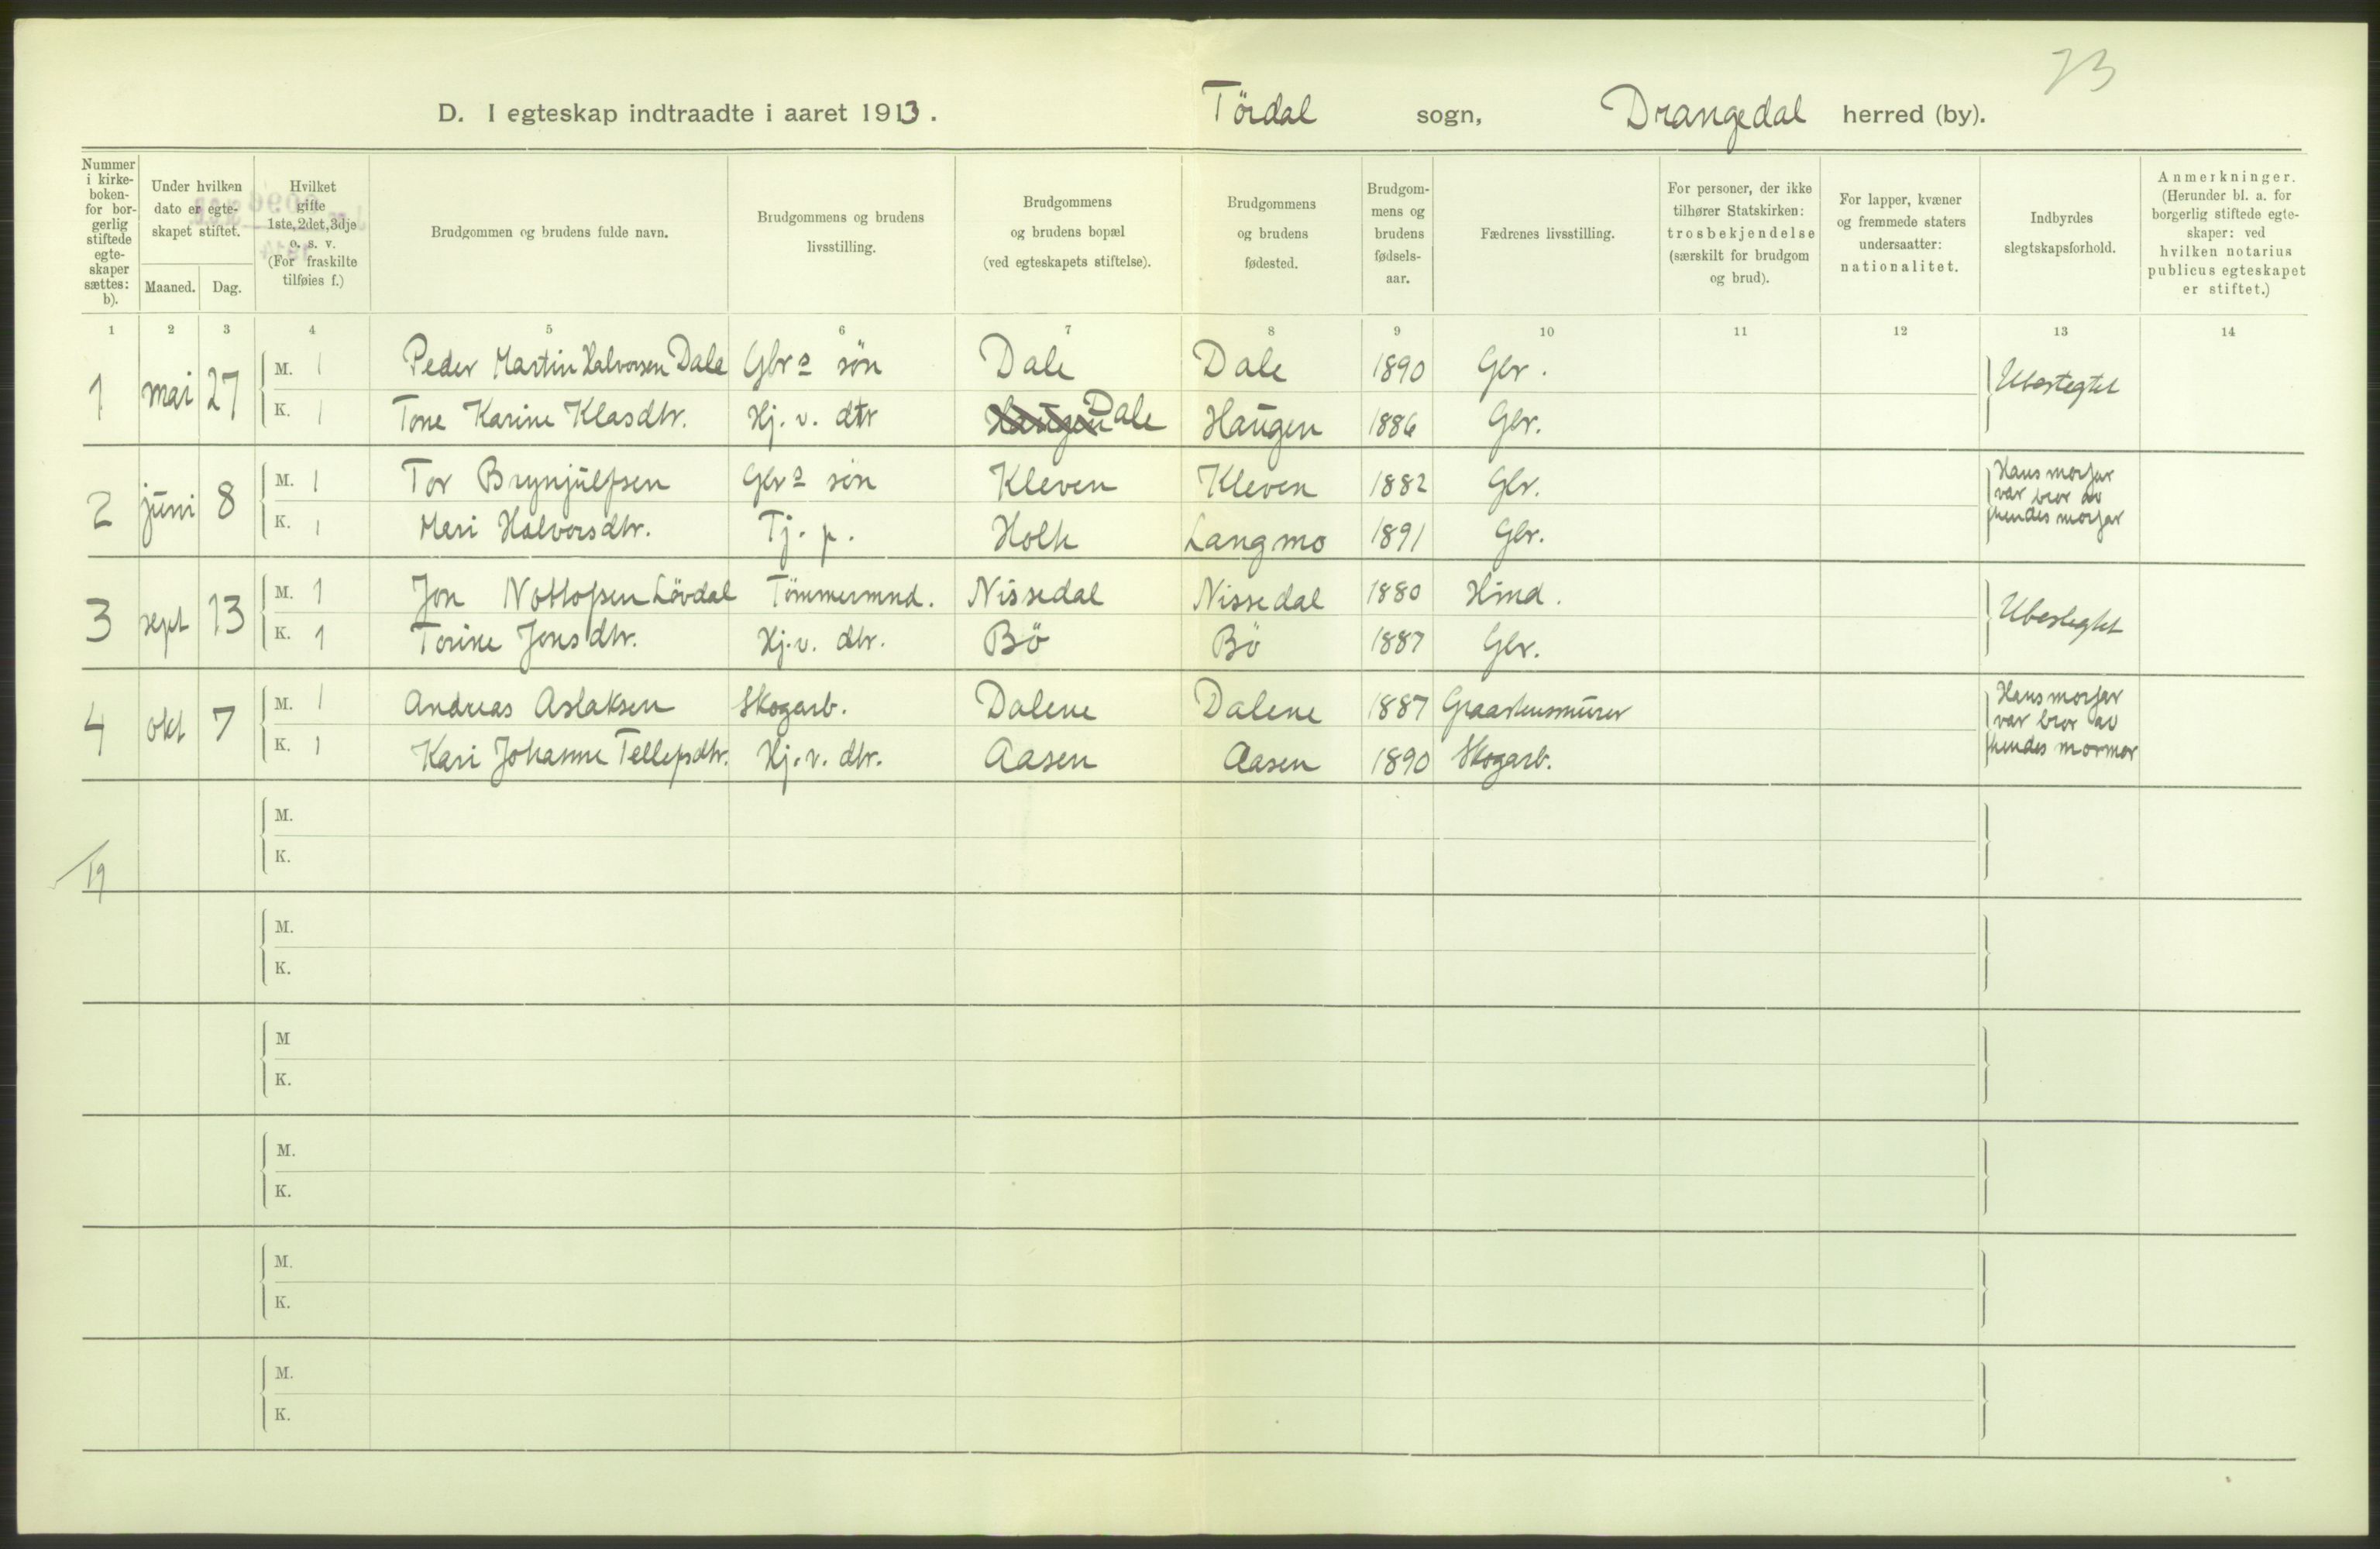 73
D. I egteskap indtraadte i aaret 1913. Tördal sogn, Drangedal herred (by).
Nummer i kirke-boken- for bor-gerlig stiftede egte-skaper sættes: b).
Under hvilken dato er egte-skapet stiftet.
Maaned. Dag.
Hvilket gifte 1ste, 2det, 3dje o. s. v. (For fraskilte tilføies f.)
Brudgommen og brudens fulde navn.
Brudgommens og brudens livsstilling.
Brudgommens og brudens bopæl (ved egteskapets stiftelse).
Brudgommens og brudens fødested.
Brudgom-mens og brudens fødsels-aar.
Fædrenes livsstilling.
For personer, der ikke tilhører Statskirken: trosbekjendelse (særskilt for brudgom og brud).
For lapper, kvæner og fremmede staters undersaatter: nationalitet.
Indbyrdes slegtskapsforhold.
Anmerkninger. (Herunder bl. a. for borgerlig stiftede egte-skaper: ved hvilken notarius publicus egteskapet er stiftet.)
1 2 3 4 5 6 7 8 9 10 11 12 13 14
1 mai 27 M. 1 Peder Martin Halvorsen Dale Gbrs søn Dale Dale 1890 Gbr. Ubeslegtet
K. 1 Tone Karine Klasdtr. Hj. v. dtr Haugen Dale Haugen 1886 Gbr.
2 juni 8 M. 1 Tor Brynjulfsen Gbrs søn Kleven Kleven 1882 Gbr. Hans morfar var bror av hendes morfar
K. 1 Meri Halvorsdtr. Tj. p. Holte Langmo 1891 Gbr.
3 sept 13 M. 1 Jon Nottolfsen Lövdal Tömmermnd. Nissedal Nissedal 1880 Hmd. Ubeslegtet
K. 1 Torine Jonsdtr. Hj. v. dtr. Bö Bö 1887 Gbr.
4 okt 7 M. 1 Andreas Aslaksen Skogarb. Dalene Dalene 1887 Graastensmurer Hans morfar var bror av hendes mormor
K. 1 Kari Johanne Tellefsdtr. Hj. v. dtr. Aasen Aasen 1890 Skogarb.
M.
K.
19
M.
K.
M
K.
M.
K.
M.
K.
M.
K.